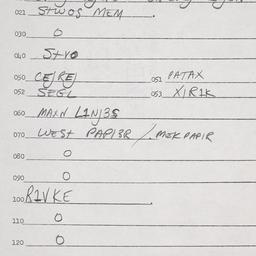 021 StwOS MEM .
030 O
040 Stvo
050 CEJREJ 051 PATAX
052 SEGL 053 XIR1K
060 MAXN L1NJ3S
070 WESt PAPI3R /. MEK PAPIR
080 O
090 O
100 R1VKE .
110 O
120 O